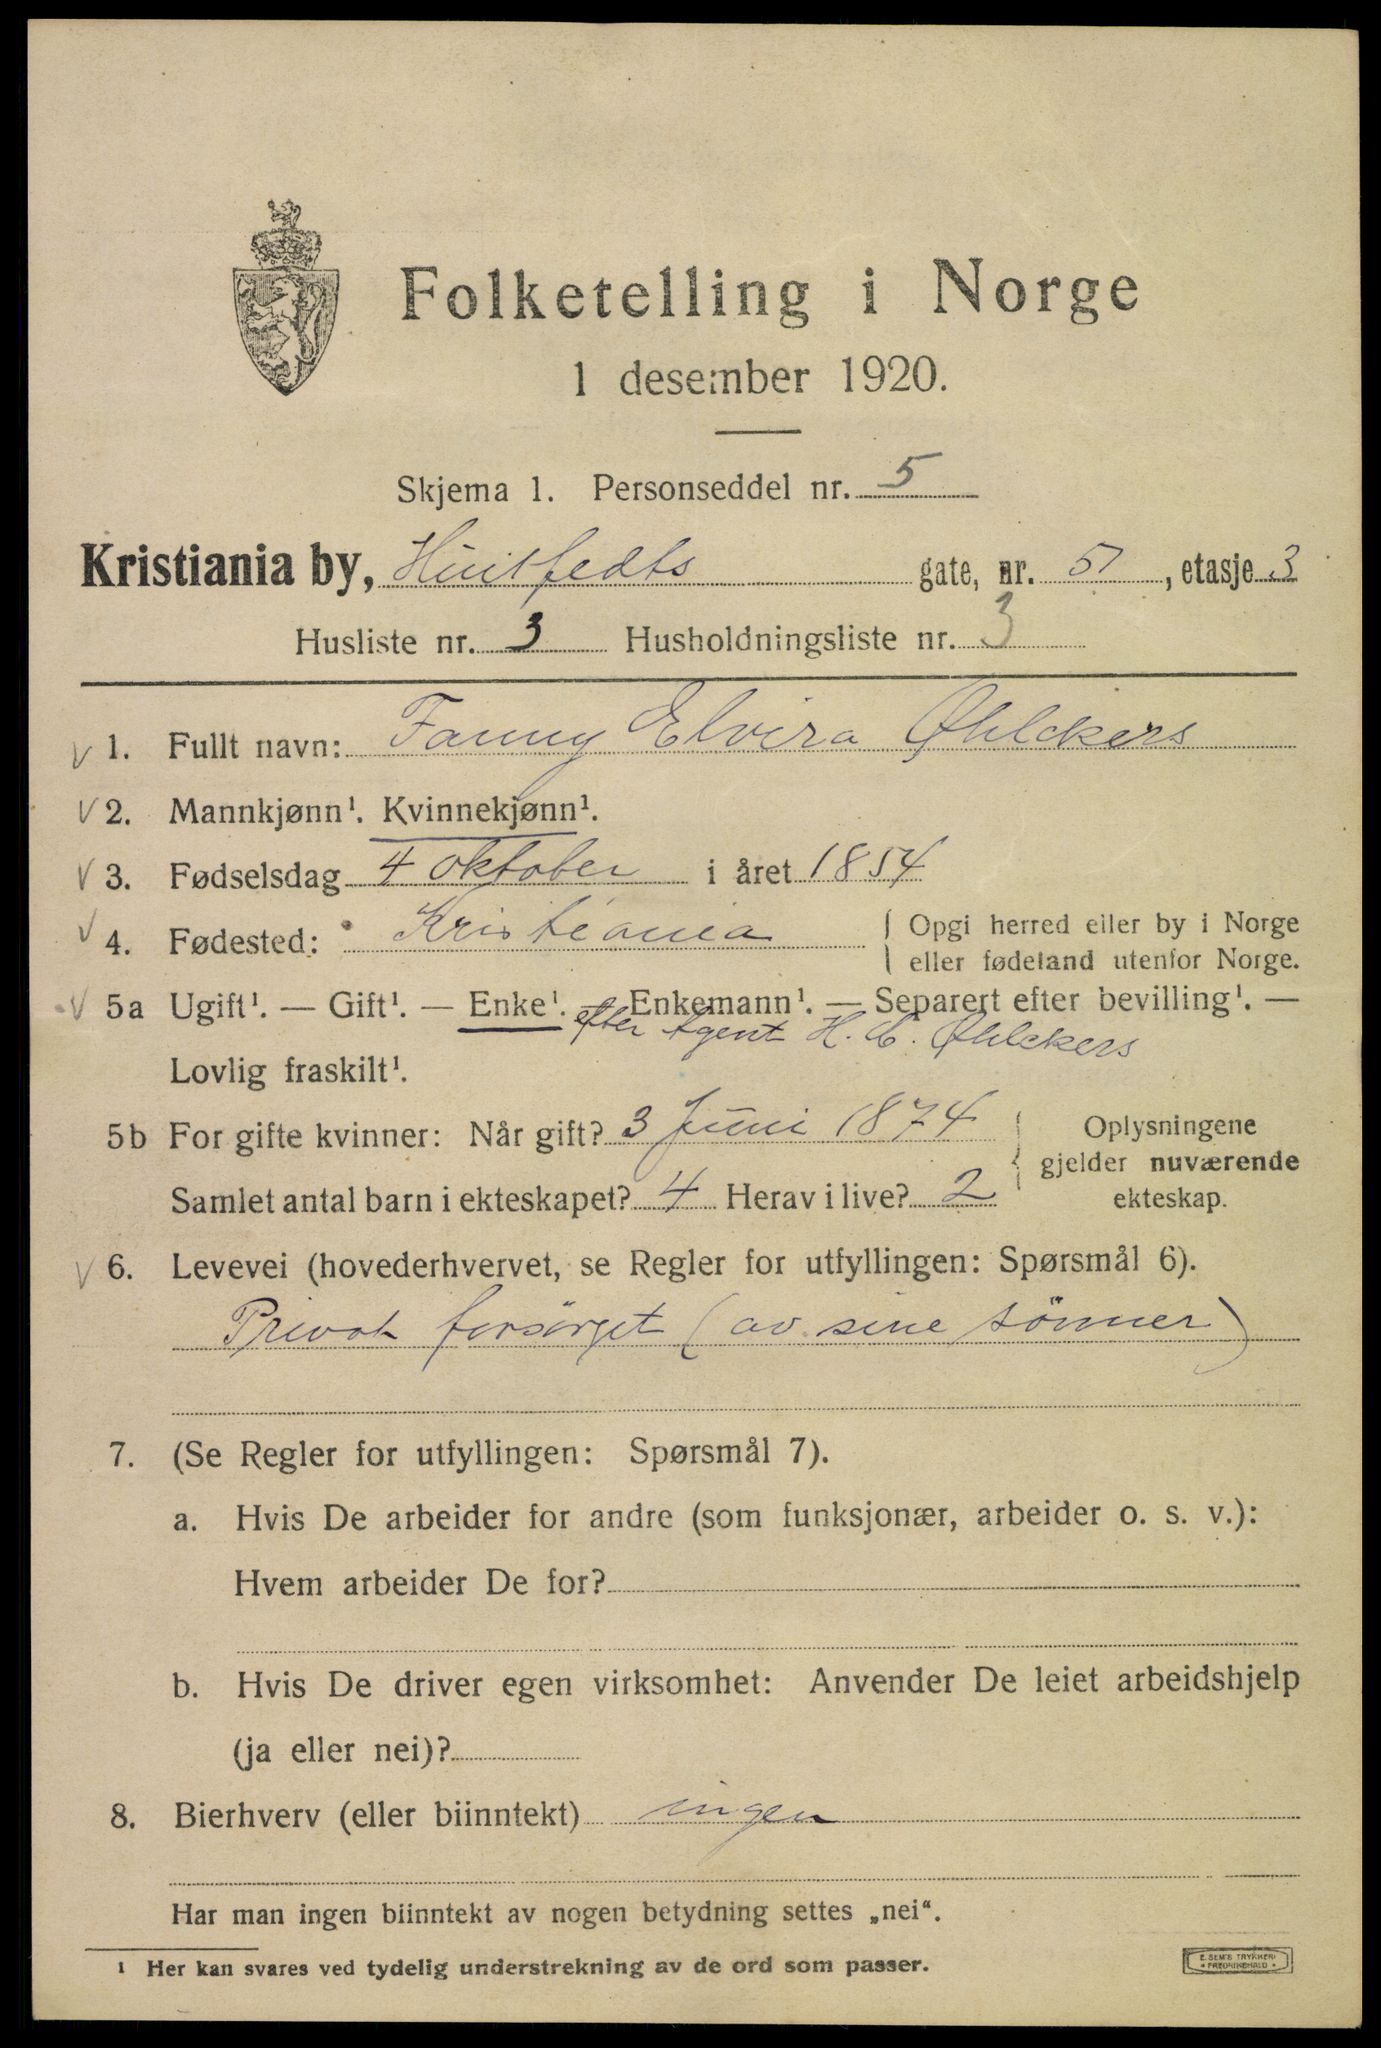 Folketelling i Norge
1 desember 1920.
Skjema 1. Personseddel nr. 5
Kristiania by, Huitfedts gate, nr. 51, etasje 3
Husliste nr. 3 Husholdningsliste nr. 3
1. Fullt navn: Fanny Elvira Øhlckers
2. Mannkjønn¹. Kvinnekjønn¹.
3. Fødselsdag 4 oktober i året 1854
4. Fødested: Kristiania { Opgi herred eller by i Norge
eller fødeland utenfor Norge.
5a Ugift¹. — Gift¹. — Enke¹. — Enkemann¹. — Separert efter bevilling¹. —
efter Agent H. C. Øhlckers
Lovlig fraskilt¹.
5b For gifte kvinner: Når gift? 3 Juni 1874 { Oplysningene
gjelder nuværende
Samlet antal barn i ekteskapet? 4 Herav i live? 2 ekteskap.
6. Levevei (hovederhvervet, se Regler for utfyllingen: Spørsmål 6).
Privat forsörget (av sine sönner)
7. (Se Regler for utfyllingen: Spørsmål 7).
a. Hvis De arbeider for andre (som funksjonær, arbeider o. s. v.):
Hvem arbeider De for?
b. Hvis De driver egen virksomhet: Anvender De leiet arbeidshjelp
(ja eller nei)?
8. Bierhverv (eller biinntekt) ingen
Har man ingen biinntekt av nogen betydning settes „nei“.
¹ Her kan svares ved tydelig understrekning av de ord som passer.
E. SEM'S TRYKKERI
• FREDRIKSHALD •